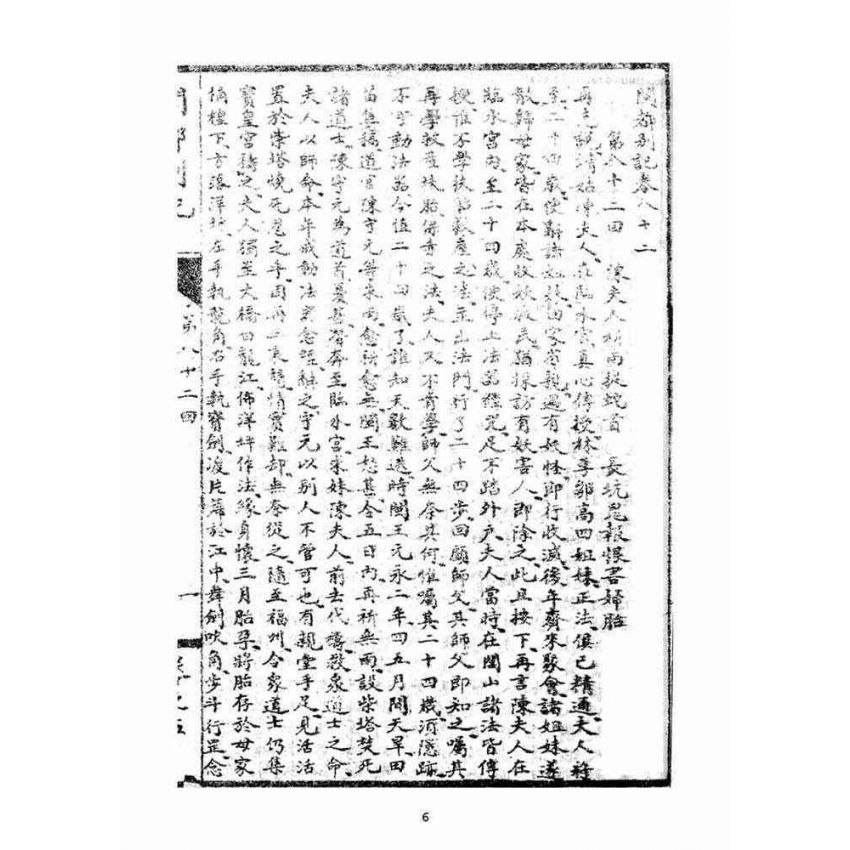 閩都別記卷八十二
第八十二回 陳夫人祈雨捉蛇首 長坑鬼報恨害婦胎
再之說靖姑陳夫人在臨水宮真心傳授林李鄒高四姐妹正法俱已精通夫人將
至二十四歲使辭諸姐妹回家省親遇有妖怪即行收滅後年齊來聚會諸姐妹遂
散歸母家皆在本處收妖救民猶採訪有妖害人即除之此且按下再言陳夫人在
臨水宮內至二十四歲便停止法器繼咒足不踏外户夫人當時在閭山諸法皆傳
授惟不學扶胎救產之法未出法門行了二十四步回顧師父其師父即知之囑其
再學救產扶胎保赤之法夫人又不肯學師父無奈其何惟囑其二十四歲須隱跡
不可動法器今值二十四歲了誰知天數難逃時閩王元永二年四五月間天旱田
苗無稿道官陳守元等求雨愈祈愈無閩王怒甚令五日內再祈無雨設柴塔焚死
諸道士陳守元為道首憂甚奔至臨水宮求妹陳夫人前去代禱救衆道士之命
夫人以師命本年戒動法器愈堅辭之守元以别人不管可也有親堂手足見活活
置於柴塔燒死忍之乎因再三哀懇情實難却無奈從之隨至福州令衆道士仍集
寶皇宮禱之夫人獨至大橋白龍江佈洋坪作法緣身懷三月胎孕將胎存於母家
倘樓下方落洋坪左手執龍角右手執寶劍渡片蓆於江中舞劍吹角步斗行罡念
第八十二回
6